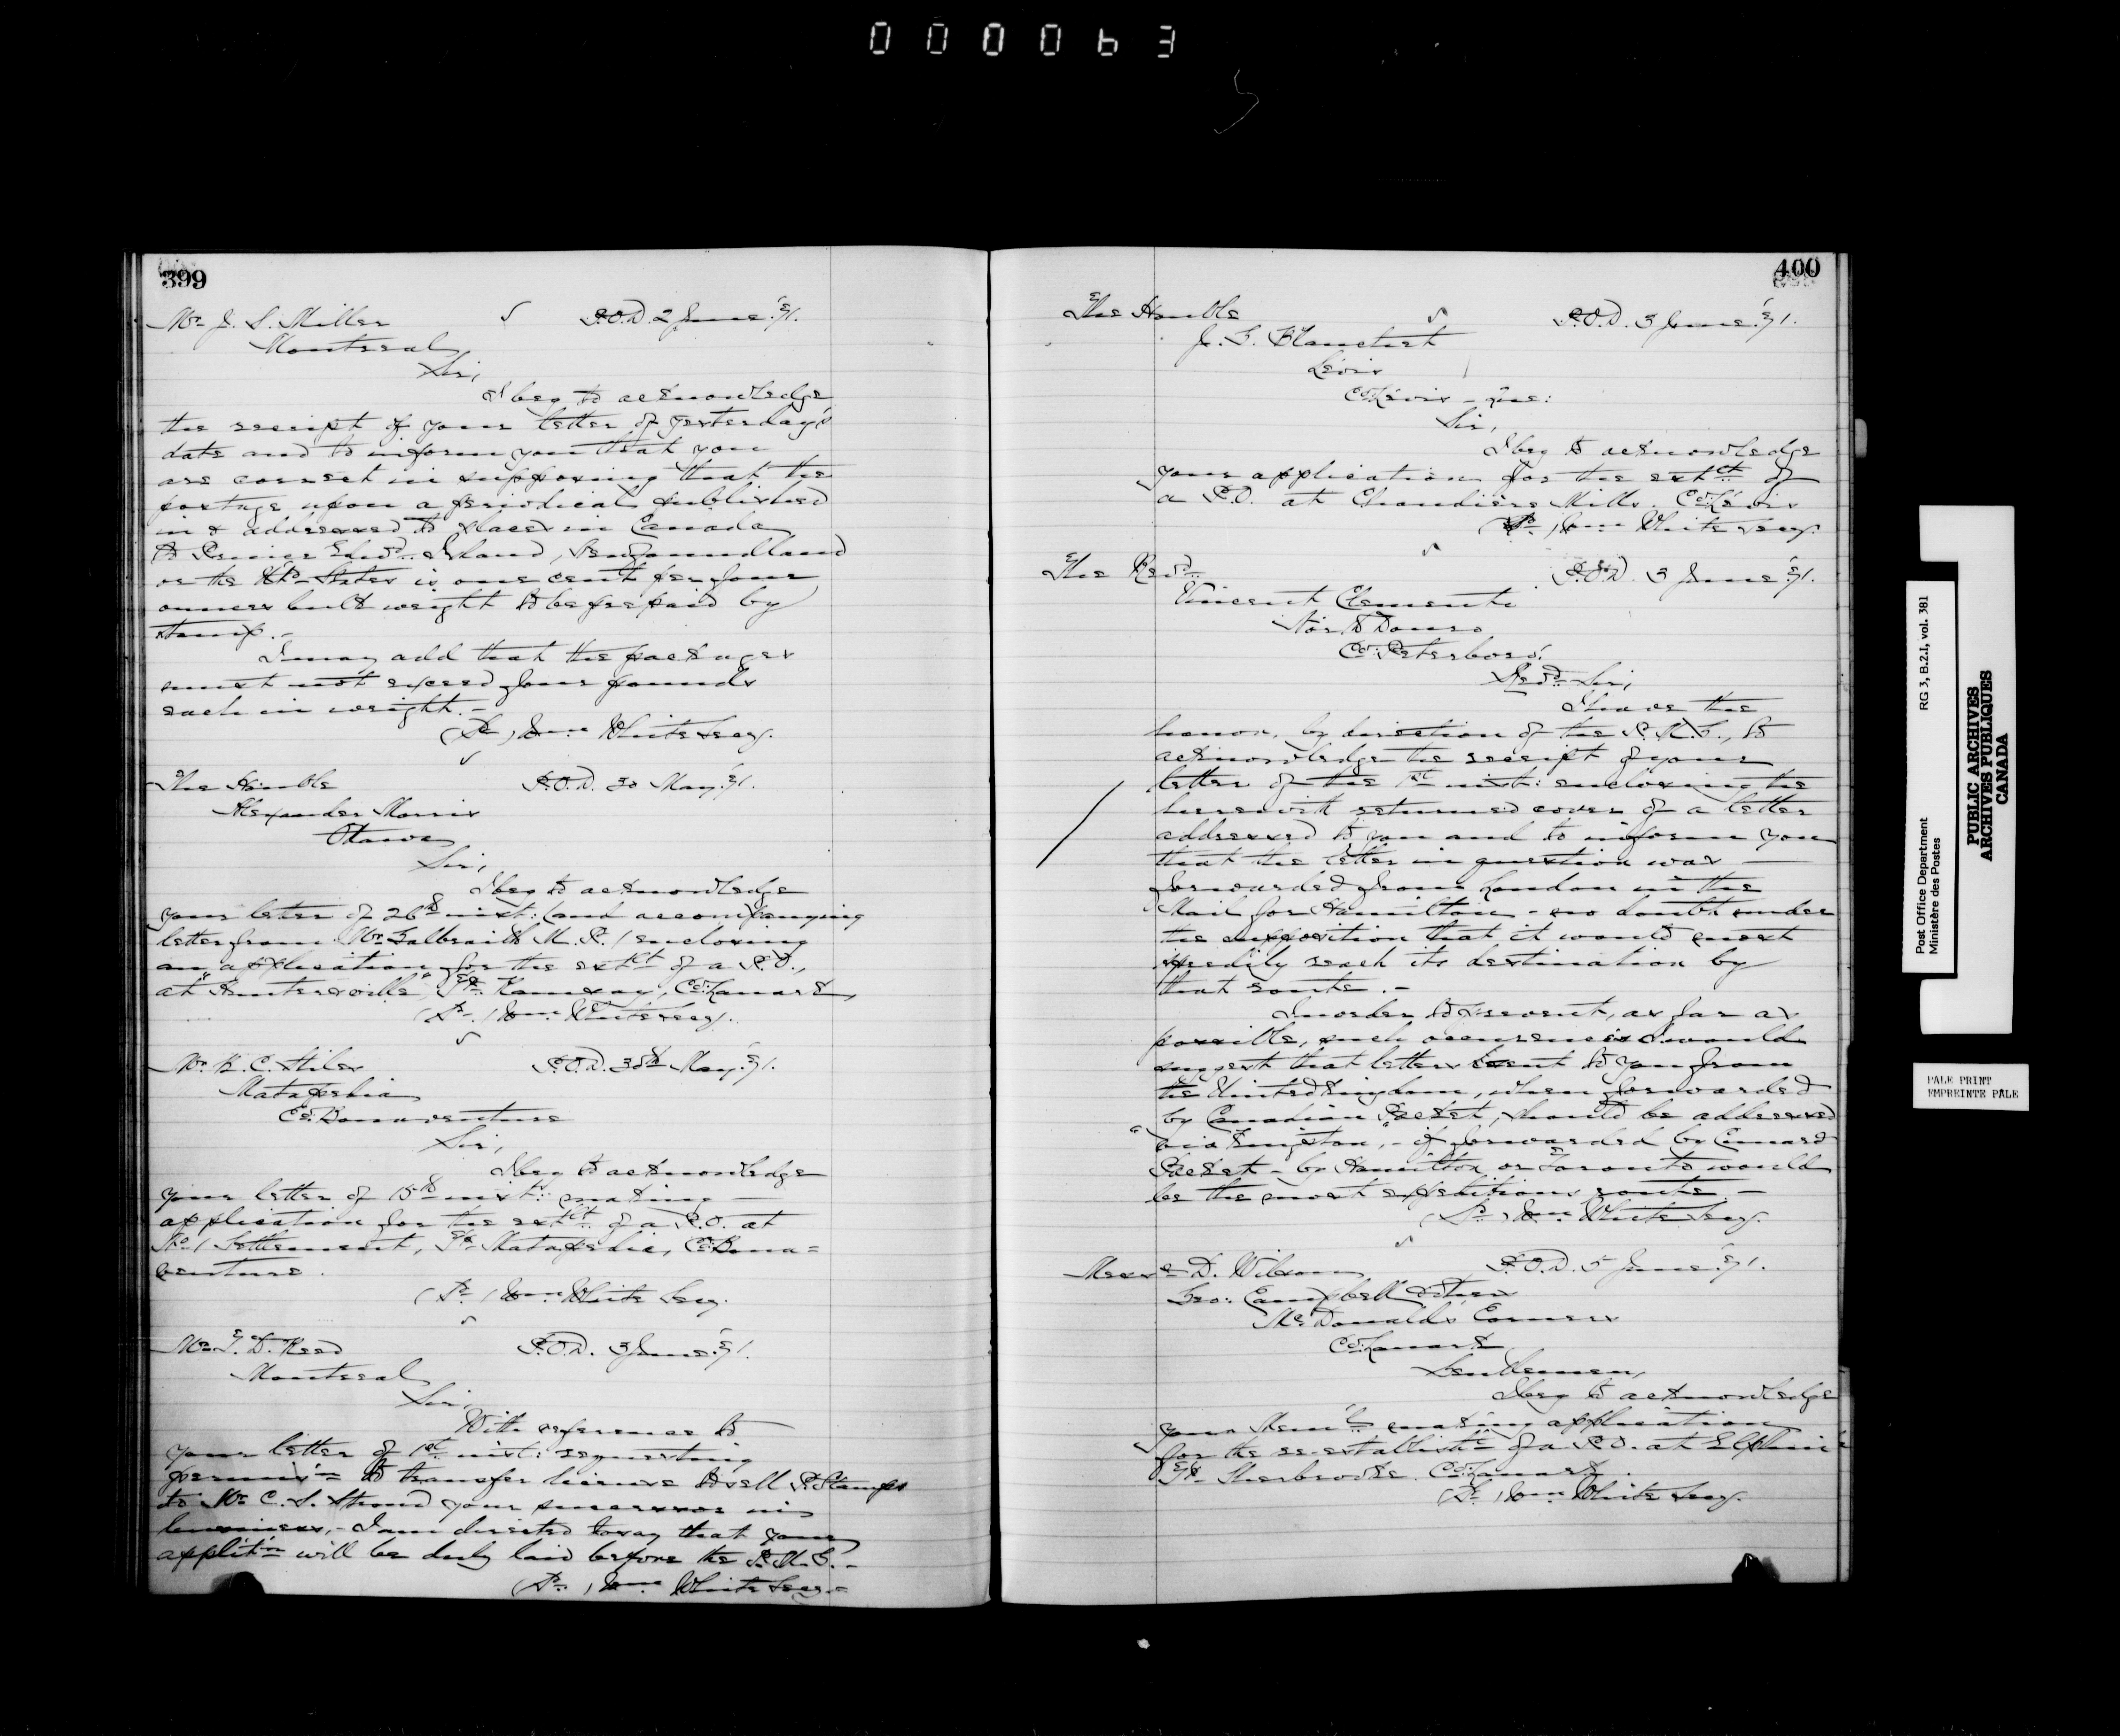 000063
399
Mr. J. S. Miller P.O.D. 2 June '71.
Montreal
Sir,
I beg to acknowledge
the receipt of your letter of yesterday's
date and to inform you that you
are correct in supposing that the
postage upon a periodical published
in & addressed to places in Canada
to Prince Edwd. Island, Newfoundland
or the Utd. States is one cent per four
ounces bulk weight to be prepaid by
stamp.-
I may add that the packages
must not exceed four pounds
each in weight.-
(Sd.) Wm. White Secy.
The Honble P.O.D. 30 May '71.
Alexander Morris
Ottawa
Sir,
I beg to acknowledge
your letter of 26th inst: (and accompanying
letter from Mr. Galbraith M.P.) enclosing
an application for the estt. of a P.O.,
at "Hunterville", Tp. Ramsay, Co. Lanark,
(Sd.) Wm. White Secy.
Mr. C. Stiles P.O.D. 30th May '71.
Matapedia
Co: Bonaventure
Sir,
I beg to acknowledge
your letter of 15th inst: making
application for the estt. of a P.O. at
No. 1 Settlement, Tp. Matapedia, Co: Bona=
venture.
(Sd.) Wm. White Secy.
Mr. T. D. Reed P.O.D. 3 June '71.
Montreal
Sir,
With reference to
your letter of 1st inst: requesting
permis'n to transfer license to sell P. Stamps
to Mr. C. S. Stroud your successor in
business,- I am directed to say that your
applit'n will be duly laid before the P.M.G.-
(Sd.) Wm. White Secy.-
400
The Honble P.O.D. 3 June '71.
J. G. Blanchet
Levis
Co: Levis - Que:
Sir,
I beg to acknowledge
your application for the estt. of
a P.O. at Chaudière Mills. Co: Levis
(Sd.) Wm. White Secy.
The Revd. P.O.D. 3 June '71.
Vincent Clementi
North Douro
Co: Peterboro'.
Revd. Sir,
I have the
honor, by direction of the P.M.G., to
acknowledge the receipt of your
letter of the 1st inst: enclosing the
herewith returned cover of a letter
addressed to you and to inform you
that the letter in question was
forwarded from London in the
Mail for Hamilton - no doubt under
the supposition that it would most
speedily reach its destination by
that route.-
In order to prevent, as far as
possible, such occurrences I would
suggest that letters sent to you from
the United Kingdom, when forwarded
by Canadian Packet, should be addressed
"via Kingston",- if forwarded by Cunard
Packet - by Hamilton or Toronto would
be the most expeditious route.-
(Sd.) Wm. White Secy.
Messrs. D. Wilson P.O.D. 5 June '71.
Geo: Campbell & others
McDonald's Corners
Co: Lanark
Gentlemen,
I beg to acknowledge
your Mem'l making application
for the re-establisht. of a P.O. at Elphin
Tp. Sherbrooke. Co: Lanark.
(Sd.) Wm. White Secy.
Post Office Department RG 3, B.2.I, vol. 381
Ministère des Postes
PUBLIC ARCHIVES
ARCHIVES PUBLIQUES
CANADA
PALE PRINT
EMPREINTE PALE